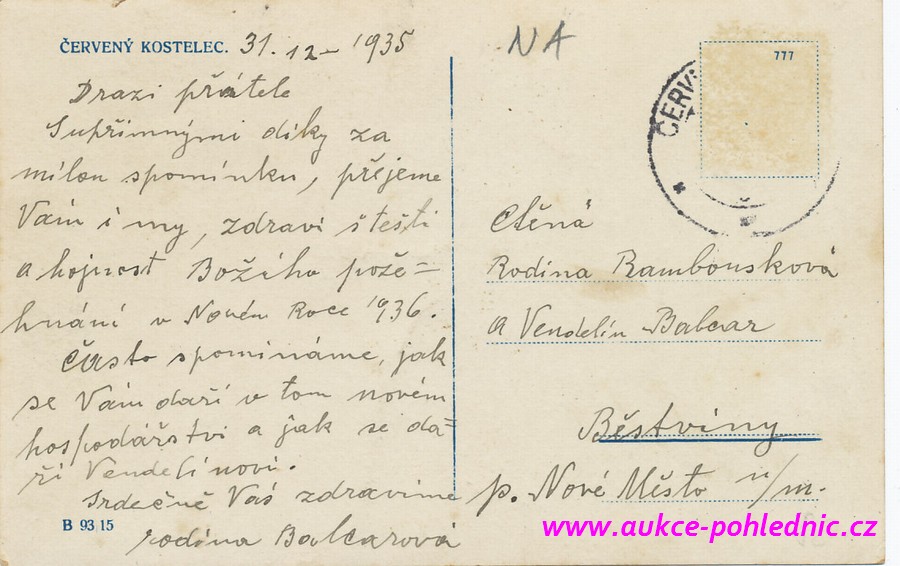 ČERVENÝ KOSTELEC. 31. 12 – 1935
Drazí přátele
S upřímnými díky za
milou spomínku, přejeme
Vám i my, zdraví štěstí
a hojnost Božího pože=
hnání v Novém Roce 1936.
Často spomínáme, jak
se Vám daří v tom novém
hospodářství a jak se da=
ří Vendelínovi.
Srdečně Vás zdravíme
rodina Balcarová
B 93 15
NA
777
ČERV
Ctěná
Rodina Rambousková
a Vendelín Balcar
Běstviny
p. Nové Město n/m.
www.aukce-pohlednic.cz